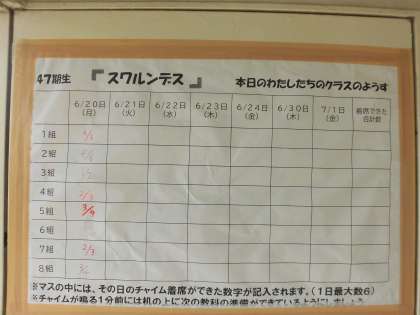 47期生 『スワルンデス』 本日のわたしたちのクラスのようす
6/20日(月) 6/21日(火) 6/22日(水) 6/23日(木) 6/24日(金) 6/30日(木) 7/1日(金) 着席できた合計数
1組
2組
3組
4組
5組
6組
7組
8組
※マスの中には、その日のチャイム着席ができた数字が記入されます。(1日最大数6)
※チャイムが鳴る1分前には机の上に次の教科の準備ができているようにしましょう